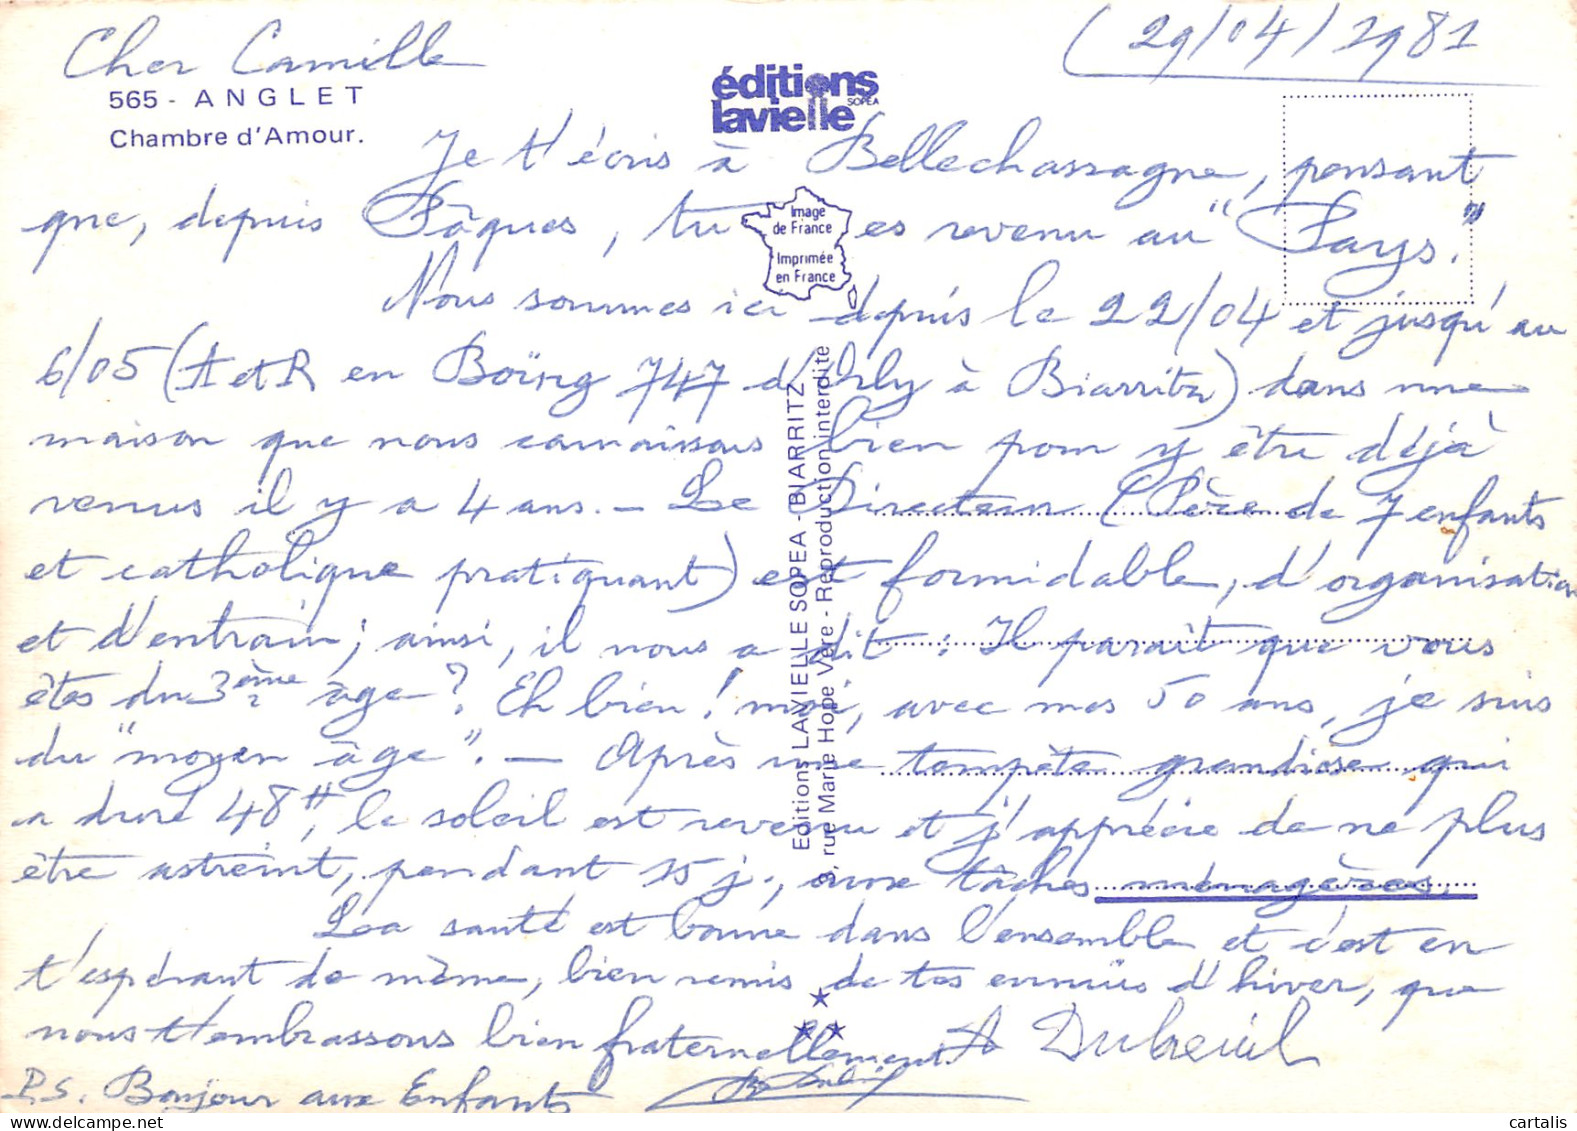 (29/04/1981
Cher Camille
565 - ANGLET
Chambre d'Amour.
éditions
lavielle
SOPEA
Je t'écris à Bellechassagne, pensant
que, depuis Pâques, tu es revenu au "Pays."
Image
de France
Imprimée
en France
Nous sommes ici depuis le 22/04 et jusqu'au
6/05 (A et R en Boïng 747 d'Orly à Biarritz) dans une
maison que nous connaissons bien pour y être déjà
venus il y a 4 ans. — Le Directeur (Père de 7 enfants
et catholique pratiquant) est formidable, d'organisation
et d'entrain; ainsi, il nous a dit : Il paraît que vous
êtes du 3ème âge? Eh bien! moi, avec mes 50 ans, je suis
du "moyen âge". — Après une tempête grandiose qui
a duré 48H, le soleil est revenu et j'apprécie de ne plus
être astreint, pendant 15 j., aux tâches ménagères.
La santé est bonne dans l'ensemble et c'est en
t'espérant de même, bien remis de tes ennuis d'hiver, que
nous t'embrassons bien fraternellement A Dubreuil
P.S. Bonjour aux Enfants
Editions LAVIELLE SOPEA - BIARRITZ
8, rue Marie Hope Vere - Reproduction interdite
cartalis